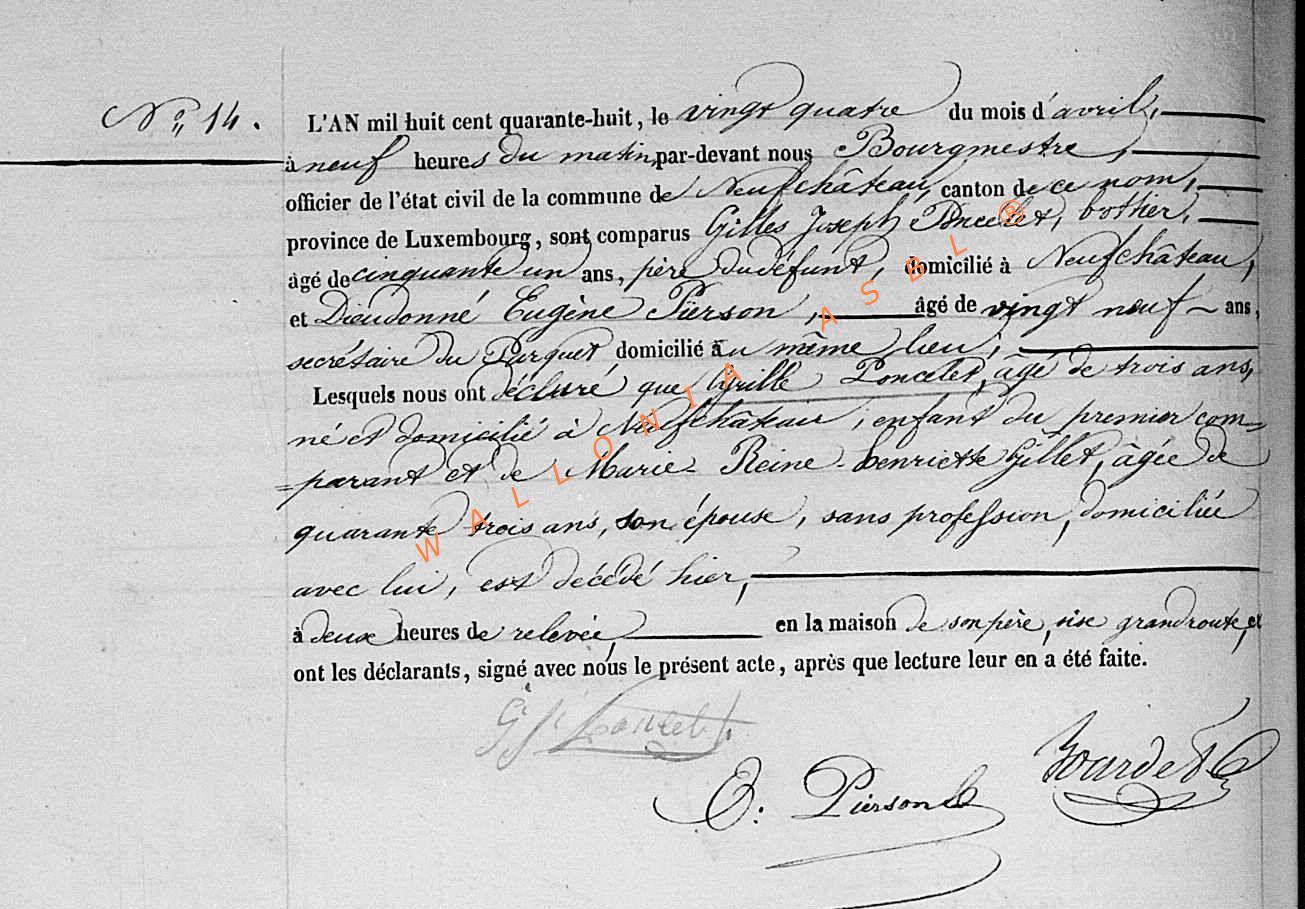 N.° 14.
L'AN mil huit cent quarante-huit, le vingt quatre du mois d'avril,
à neuf heures du matin, par-devant nous Bourgmestre,
officier de l'état civil de la commune de Neufchâteau, canton de ce nom,
province de Luxembourg, sont comparus Gilles Joseph Poncelet, bottier,
âgé de cinquante un ans, père du défunt, domicilié à Neufchâteau,
et Dieudonné Eugène Pierson, âgé de vingt neuf ans,
secrétaire du Parquet, domicilié au même lieu,
Lesquels nous ont déclaré que Cyrille Poncelet, âgé de trois ans,
né et domicilié à Neufchâteau, enfant du premier com=
=parant et de Marie-Reine-henriette Gillet, âgée de
quarante trois ans, son épouse, sans profession, domiciliée
avec lui, est décédé hier,
à deux heures de relevée, en la maison de son père, sise grand route, et
ont les déclarants, signé avec nous le présent acte, après que lecture leur en a été faite.
G. J. Poncelet
E. Pierson
Bourdet
WALLONIA ASBL ®